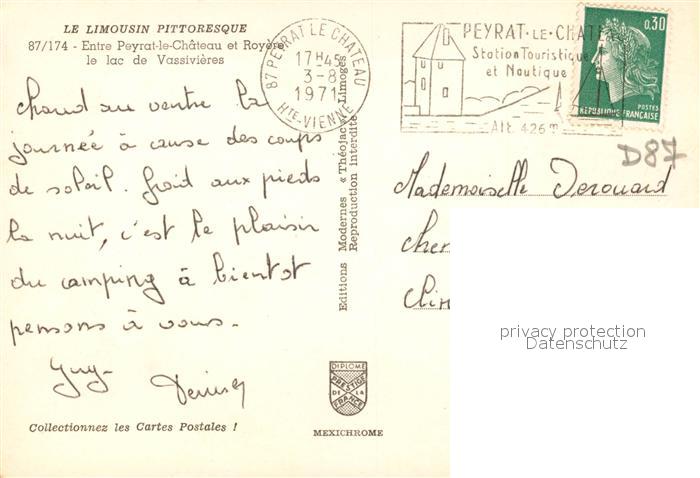 LE LIMOUSIN PITTORESQUE
87/174 - Entre Peyrat-le-Château et Royère
le lac de Vassivières
87 PEYRAT LE CHATEAU
17H45
3-8
1971
HTE-VIENNE
PEYRAT-LE-CHATEAU
Station Touristique
et Nautique
Alt. 426m
0,30
POSTES
RÉPUBLIQUE FRANÇAISE
D87
chaud au ventre la
journée à cause des coups
de soleil. froid aux pieds
la nuit, c'est le plaisir
du camping à bientot
pensons à vous.
Guy
Denise
Mademoiselle Derouard
Cher
Chin
Editions Modernes « Théojac » Limoges
Reproduction Interdite
privacy protection
Datenschutz
DIPLOME
PRESTIGE
DE LA
FRANCE
MEXICHROME
Collectionnez les Cartes Postales !